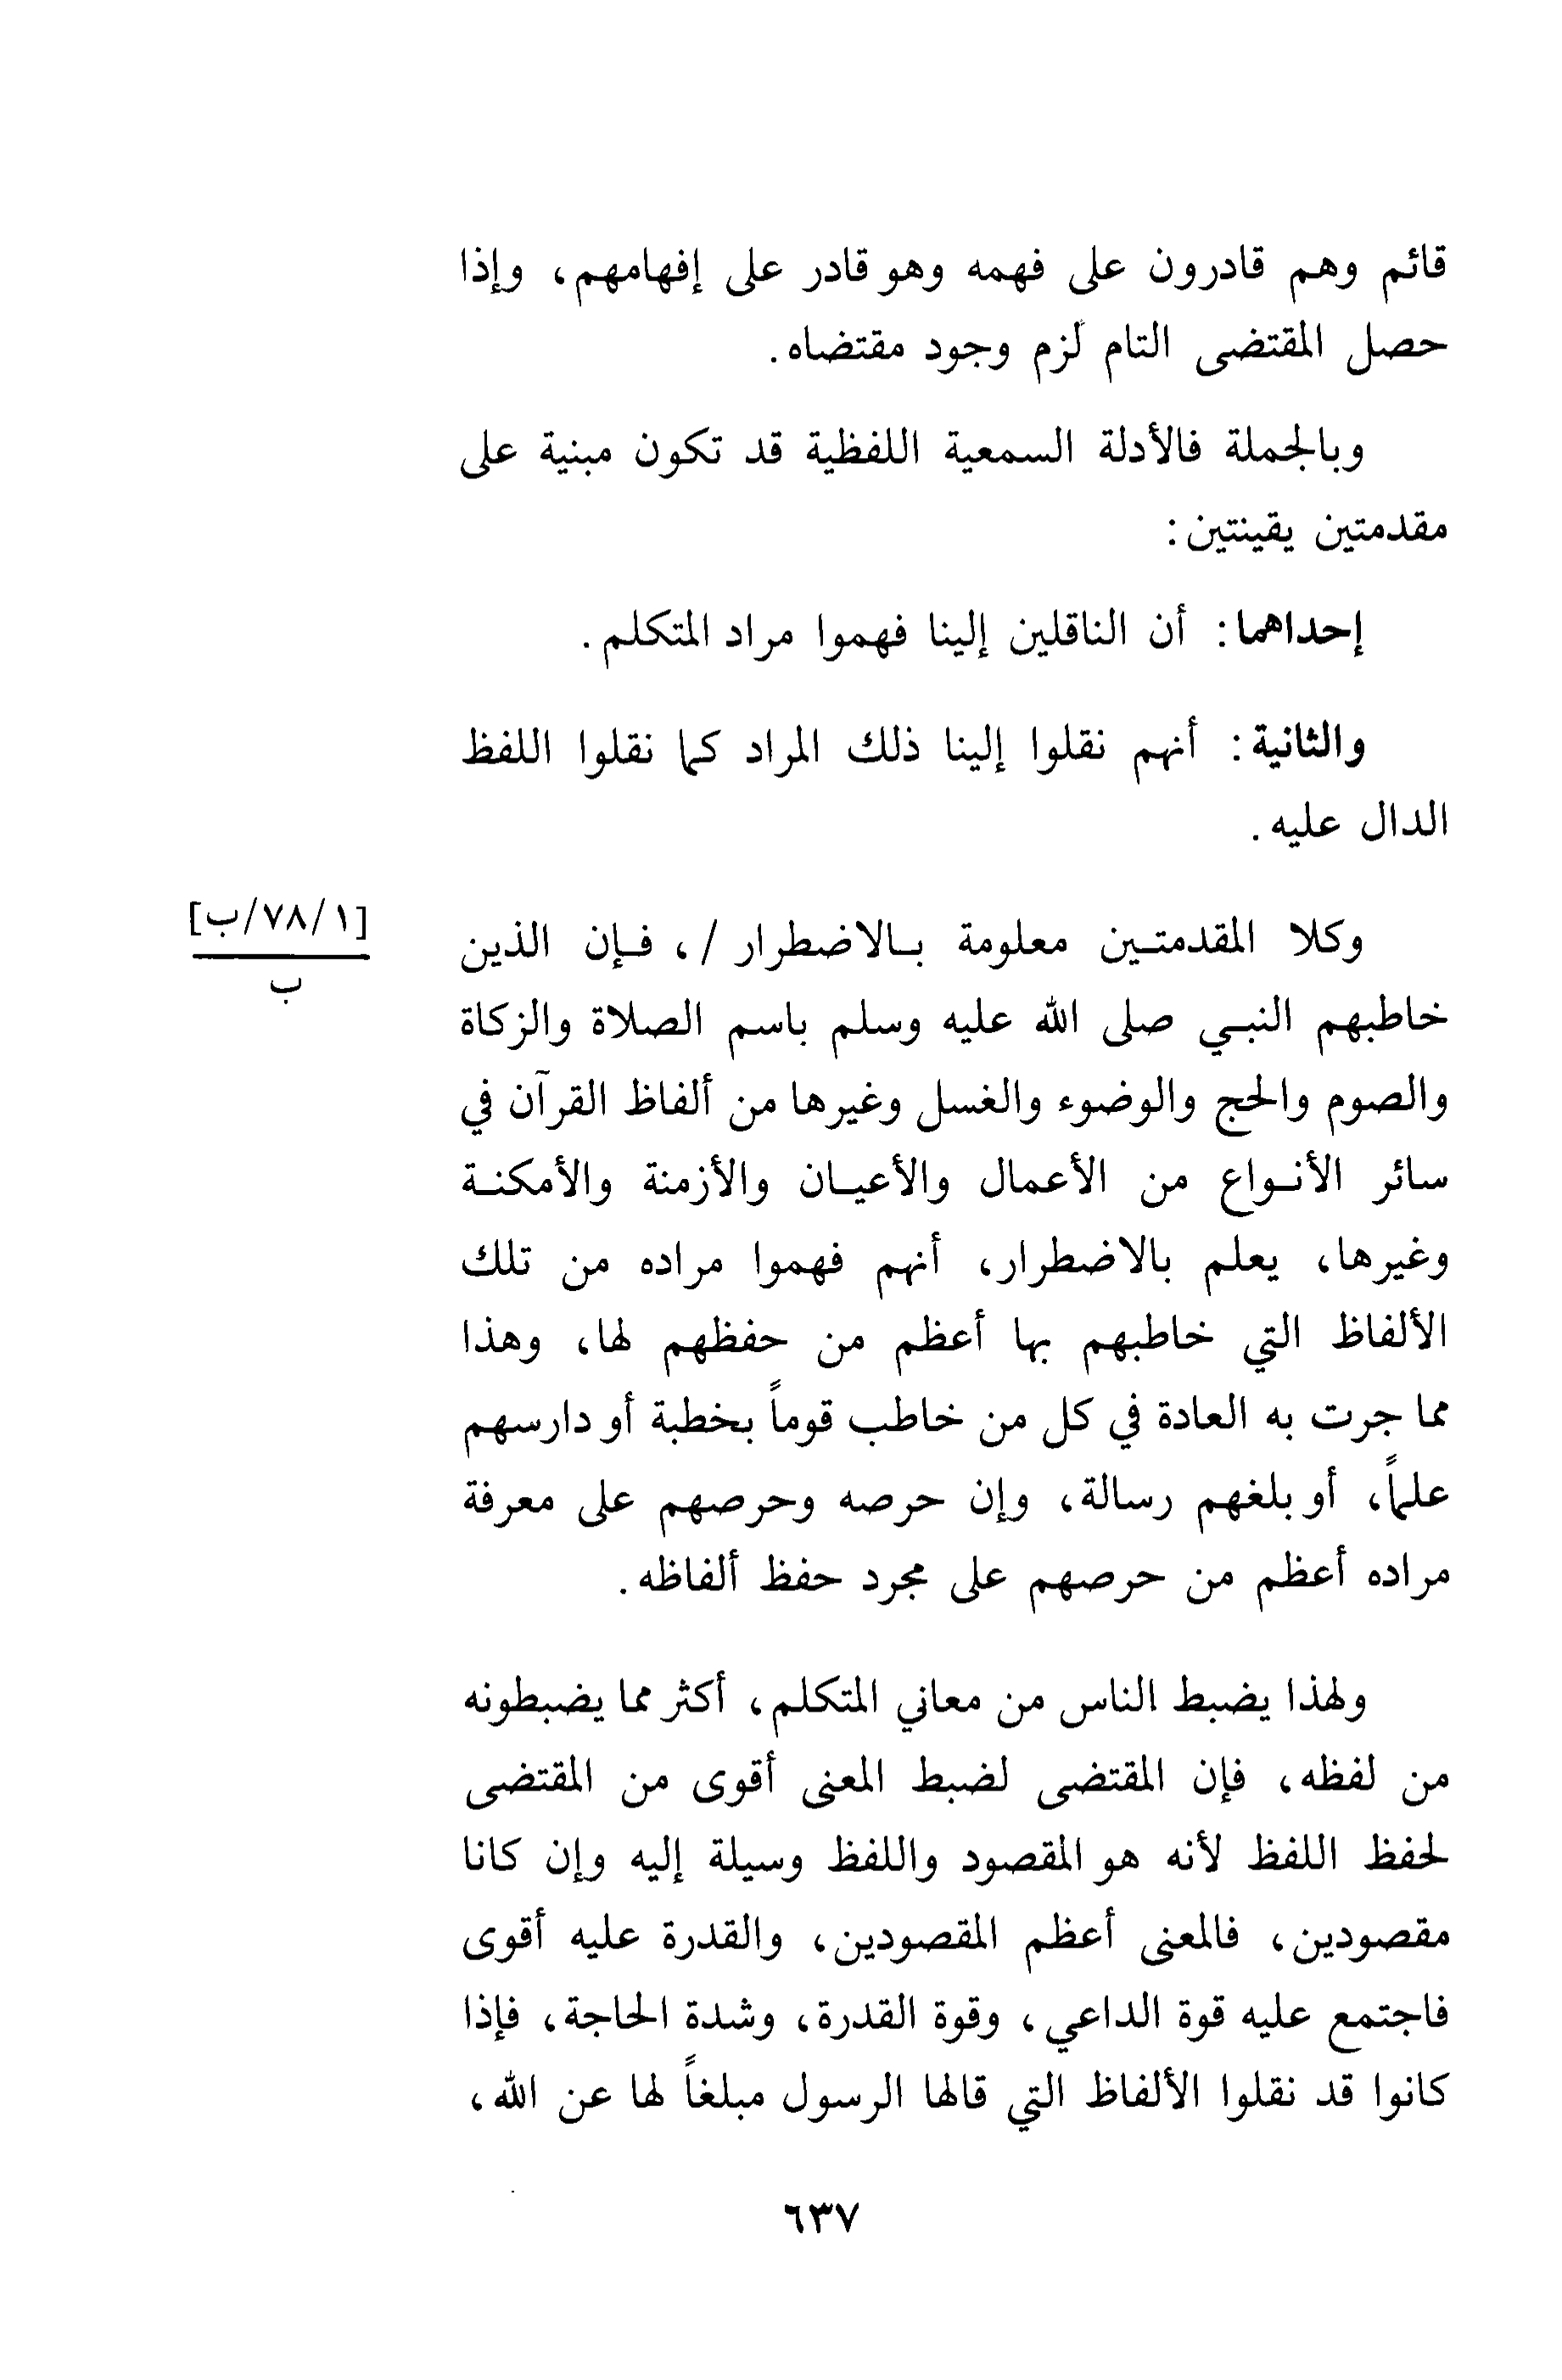 قائم وهم قادرون على فهمه وهو قادر على إفهامهم، وإذا
حصل المقتضى التام لزم وجود مقتضاه.
وبالجملة فالأدلة السمعية اللفظية قد تكون مبنية على
مقدمتين يقينتين:
إحداهما: أن الناقلين إلينا فهموا مراد المتكلم.
والثانية: أنهم نقلوا إلينا ذلك المراد كما نقلوا اللفظ
الدال عليه.
وكلا المقدمتين معلومة بالاضطرار /، فإن الذين
[١/٧٨/ب]
ب
خاطبهم النبي صلى الله عليه وسلم باسم الصلاة والزكاة
والصوم والحج والوضوء والغسل وغيرها من ألفاظ القرآن في
سائر الأنواع من الأعمال والأعيان والأزمنة والأمكنة
وغيرها، يعلم بالاضطرار، أنهم فهموا مراده من تلك
الألفاظ التي خاطبهم بها أعظم من حفظهم لها، وهذا
مما جرت به العادة في كل من خاطب قوماً بخطبة أو دارسهم
علماً، أو بلغهم رسالة، وإن حرصه وحرصهم على معرفة
مراده أعظم من حرصهم على مجرد حفظ ألفاظه.
ولهذا يضبط الناس من معاني المتكلم، أكثر مما يضبطونه
من لفظه، فإن المقتضى لضبط المعنى أقوى من المقتضى
لحفظ اللفظ لأنه هو المقصود واللفظ وسيلة إليه وإن كانا
مقصودين، فالمعنى أعظم المقصودين، والقدرة عليه أقوى
فاجتمع عليه قوة الداعي، وقوة القدرة، وشدة الحاجة، فإذا
كانوا قد نقلوا الألفاظ التي قالها الرسول مبلغاً لها عن الله،
٦٣٧